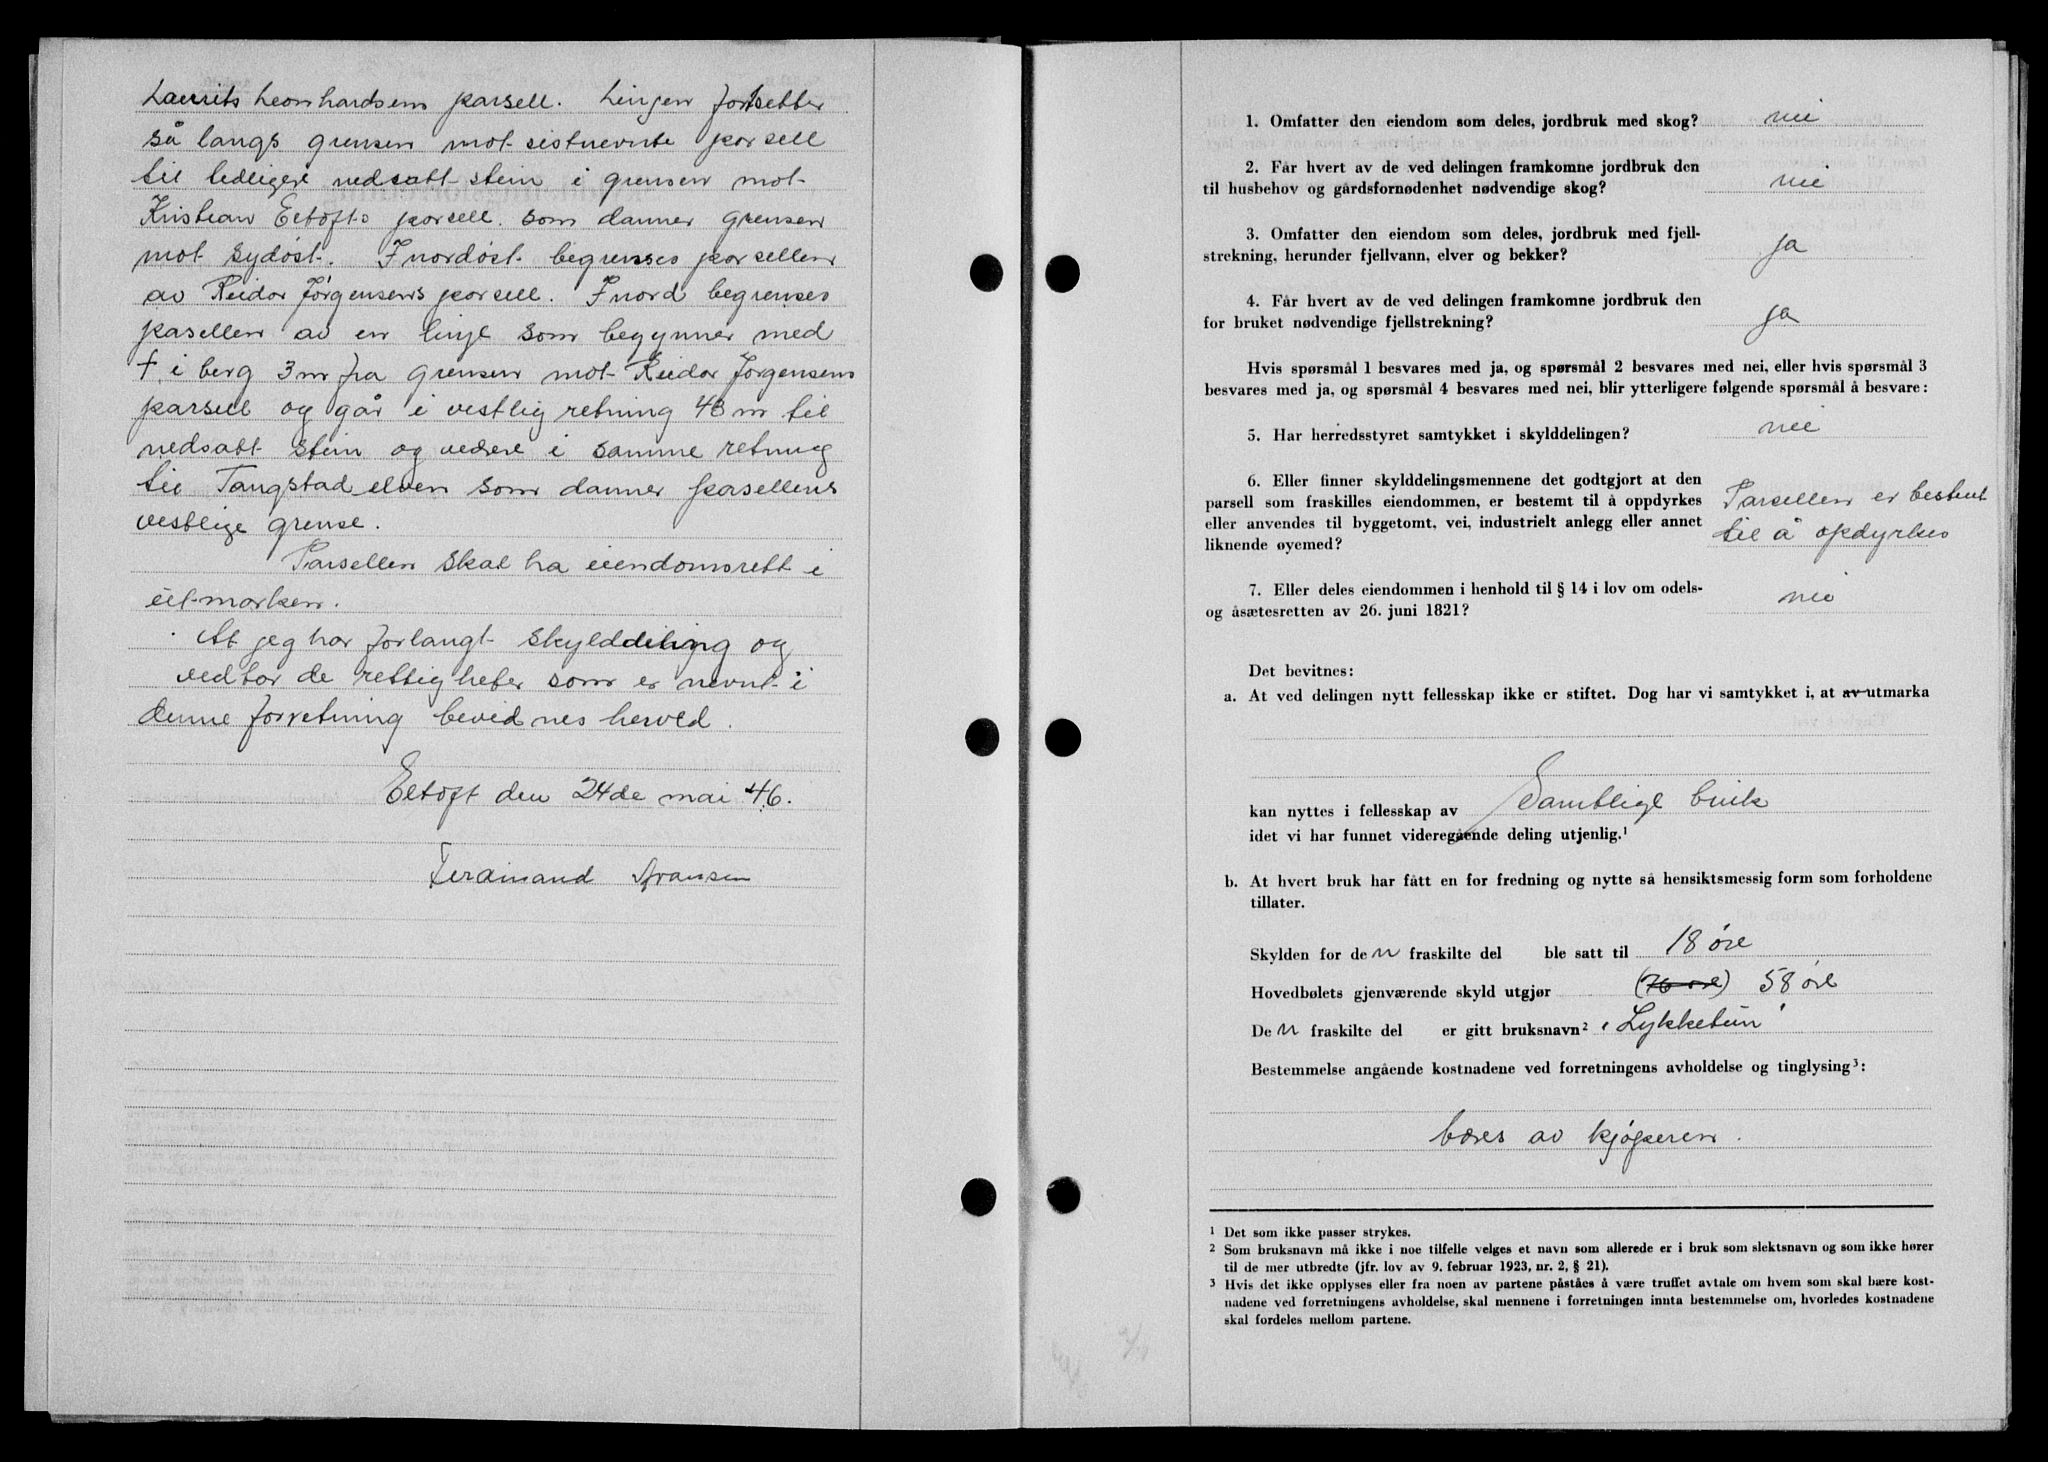 Laurits Leonhardsens parsell. Linjen fortsetter
så langs grensen mot sistnevnte parsell
til tidligere nedsatt stein i grensen mot
Kristian Eltofts parsell. som danner grensen
mot sydøst. I nordøst begrenses parsellen
av Reidar Jørgensens parsell. I nord begrenses
pasellen av en linje som begynner med
+ i berg 3 m fra grensen mot Reidar Jørgensens
parsell og går i vestlig retning 43 m til
nedsatt stein og videre i samme retning
til Tangstadelven som danner pasellens
vestlige grense.
Parsellen skal ha eiendomsrett i
utmarken.
At jeg har forlangt skylddeling og
vedtar de rettigheter som er nevnt i
denne forretning bevidnes herved.
Eltoft den 24de mai 46.
Ferdinand Aransen
1. Omfatter den eiendom som deles, jordbruk med skog? nei
2. Får hvert av de ved delingen framkomne jordbruk den
til husbehov og gårdsfornødenhet nødvendige skog? nei
3. Omfatter den eiendom som deles, jordbruk med fjell-
strekning, herunder fjellvann, elver og bekker? ja
4. Får hvert av de ved delingen framkomne jordbruk den
for bruket nødvendige fjellstrekning? ja
Hvis spørsmål 1 besvares med ja, og spørsmål 2 besvares med nei, eller hvis spørsmål 3
besvares med ja, og spørsmål 4 besvares med nei, blir ytterligere følgende spørsmål å besvare:
5. Har herredsstyret samtykket i skylddelingen? nei
6. Eller finner skylddelingsmennene det godtgjort at den
parsell som fraskilles eiendommen, er bestemt til å oppdyrkes Parsellen er bestemt
eller anvendes til byggetomt, vei, industrielt anlegg eller annet til å opdyrkes
liknende øyemed?
7. Eller deles eiendommen i henhold til § 14 i lov om odels-
og åsætesretten av 26. juni 1821? nei
Det bevitnes:
a. At ved delingen nytt fellesskap ikke er stiftet. Dog har vi samtykket i, at av utmarka
kan nyttes i fellesskap av Samtlige bruk
idet vi har funnet videregående deling utjenlig.¹
b. At hvert bruk har fått en for fredning og nytte så hensiktsmessig form som forholdene
tillater.
Skylden for den fraskilte del ble satt til 18 øre
Hovedbølets gjenværende skyld utgjør (76 øre) 58 øre
Den fraskilte del er gitt bruksnavn² "Lykketun"
Bestemmelse angående kostnadene ved forretningens avholdelse og tinglysing³:
bæres av kjøperen.
¹ Det som ikke passer strykes.
² Som bruksnavn må ikke i noe tilfelle velges et navn som allerede er i bruk som slektsnavn og som ikke hører
til de mer utbredte (jfr. lov av 9. februar 1923, nr. 2, § 21).
³ Hvis det ikke opplyses eller fra noen av partene påståes å være truffet avtale om hvem som skal bære kost-
nadene ved forretningens avholdelse, skal mennene i forretningen innta bestemmelse om, hvorledes kostnadene
skal fordeles mellom partene.